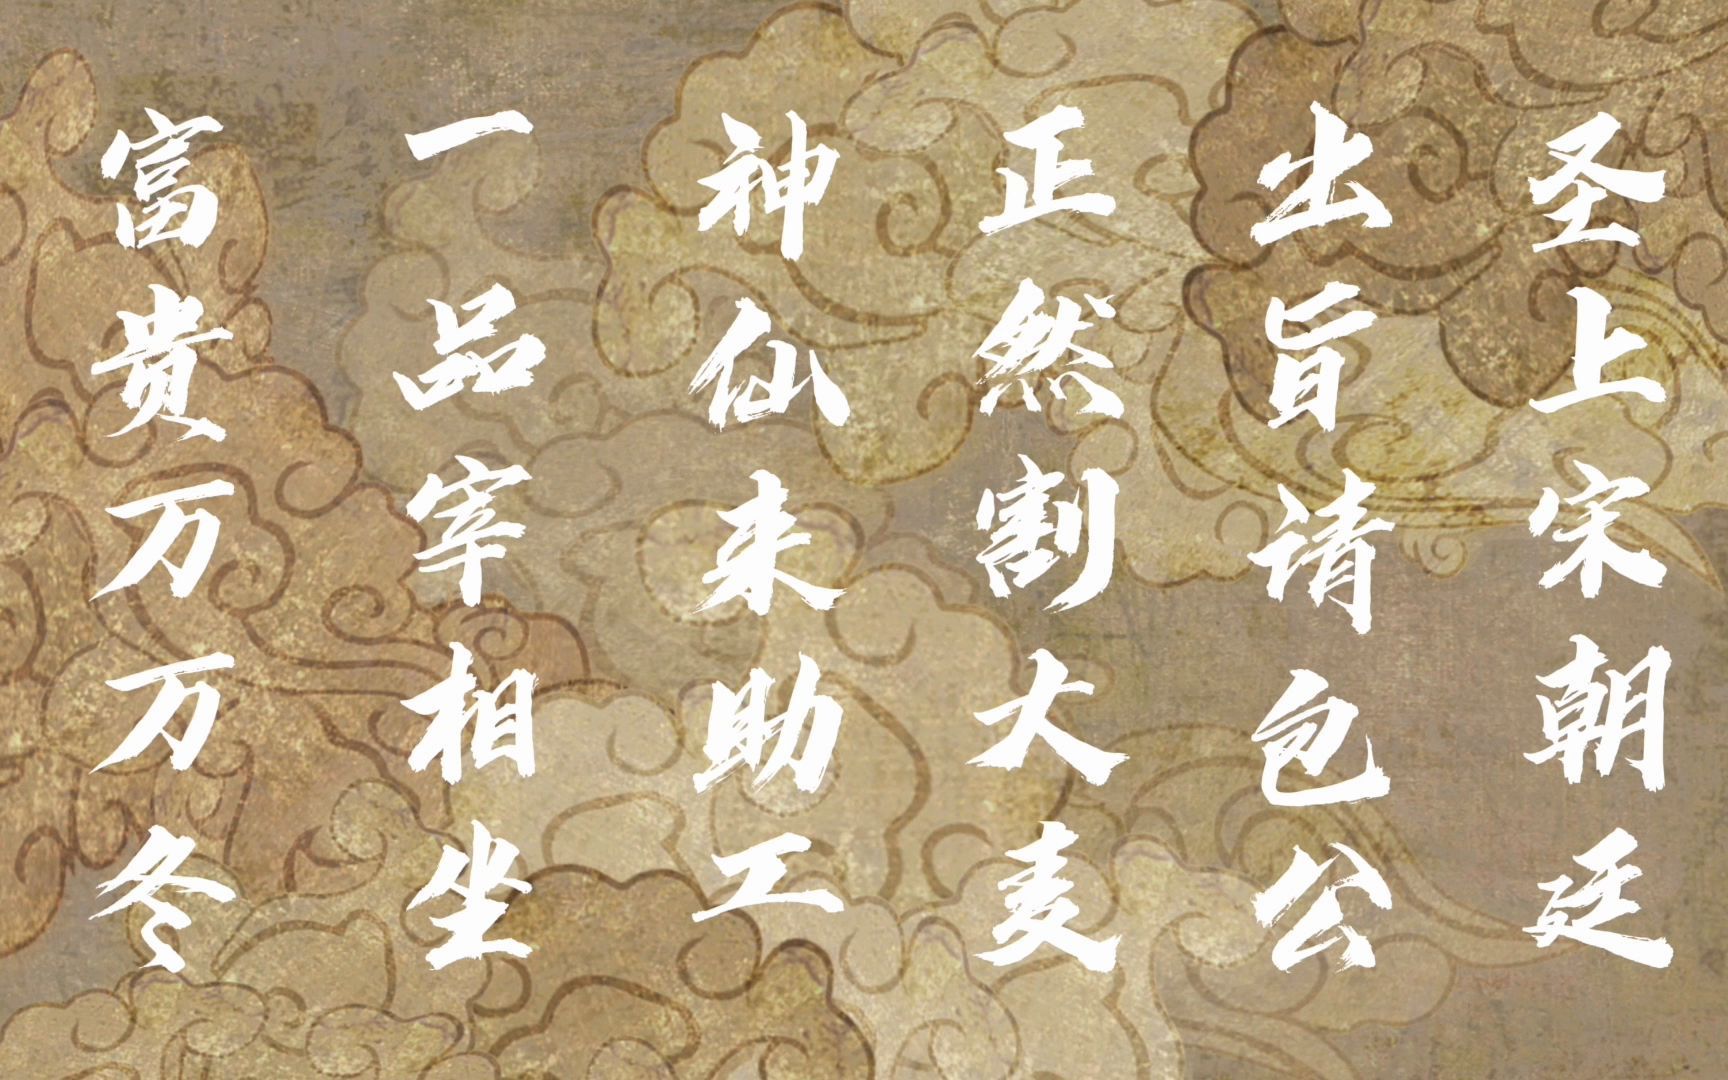 圣上宋朝廷
出旨请包公
正然割大麦
神仙来助工
一品宰相坐
富贵万万冬